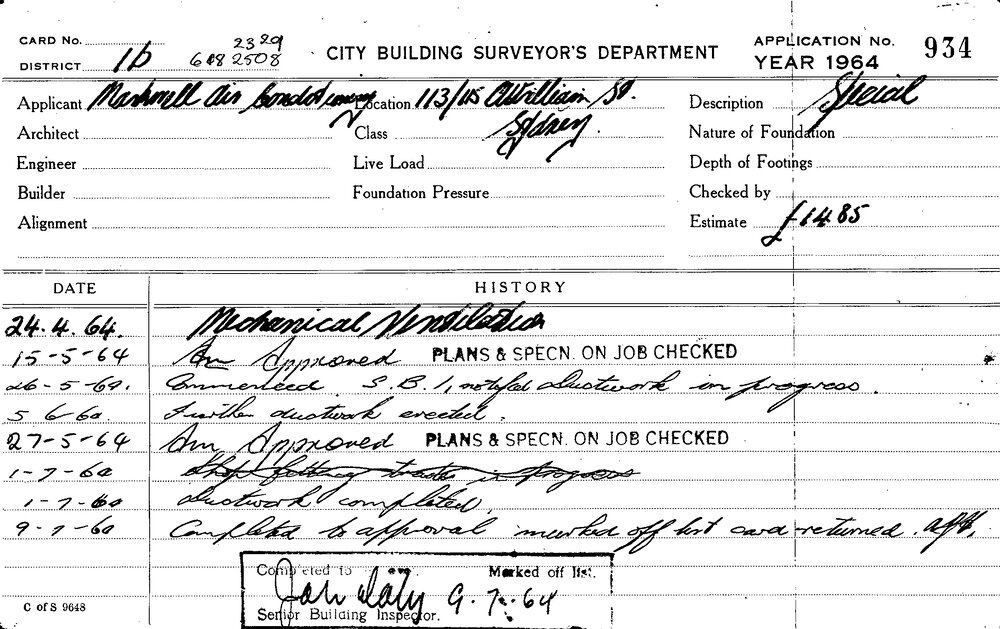 CARD No. 2329
DISTRICT 1b 608 2508
CITY BUILDING SURVEYOR'S DEPARTMENT
APPLICATION No. 934
YEAR 1964
Applicant Air Location 113/115 William St. Description Special
Architect Class Sydney. Nature of Foundation
Engineer Live Load Depth of Footings
Builder Foundation Pressure Checked by
Alignment Estimate £1485
DATE HISTORY
24.4.64. Mechanical Ventilation
15-5-64 Am Approved PLANS & SPECN. ON JOB CHECKED
26-5-64. Commenced S.B.1, notified Ductwork in progress.
5 6 64 Further ductwork erected.
27-5-64 Am Approved PLANS & SPECN. ON JOB CHECKED
1-7-64 Shop fitting trades in progress
1-7-64 Ductwork completed.
9-7-64 Completed to approval marked off list card returned.
Completed to Marked off list.
John Daly 9.7.64
Senior Building Inspector.
C of S 9648